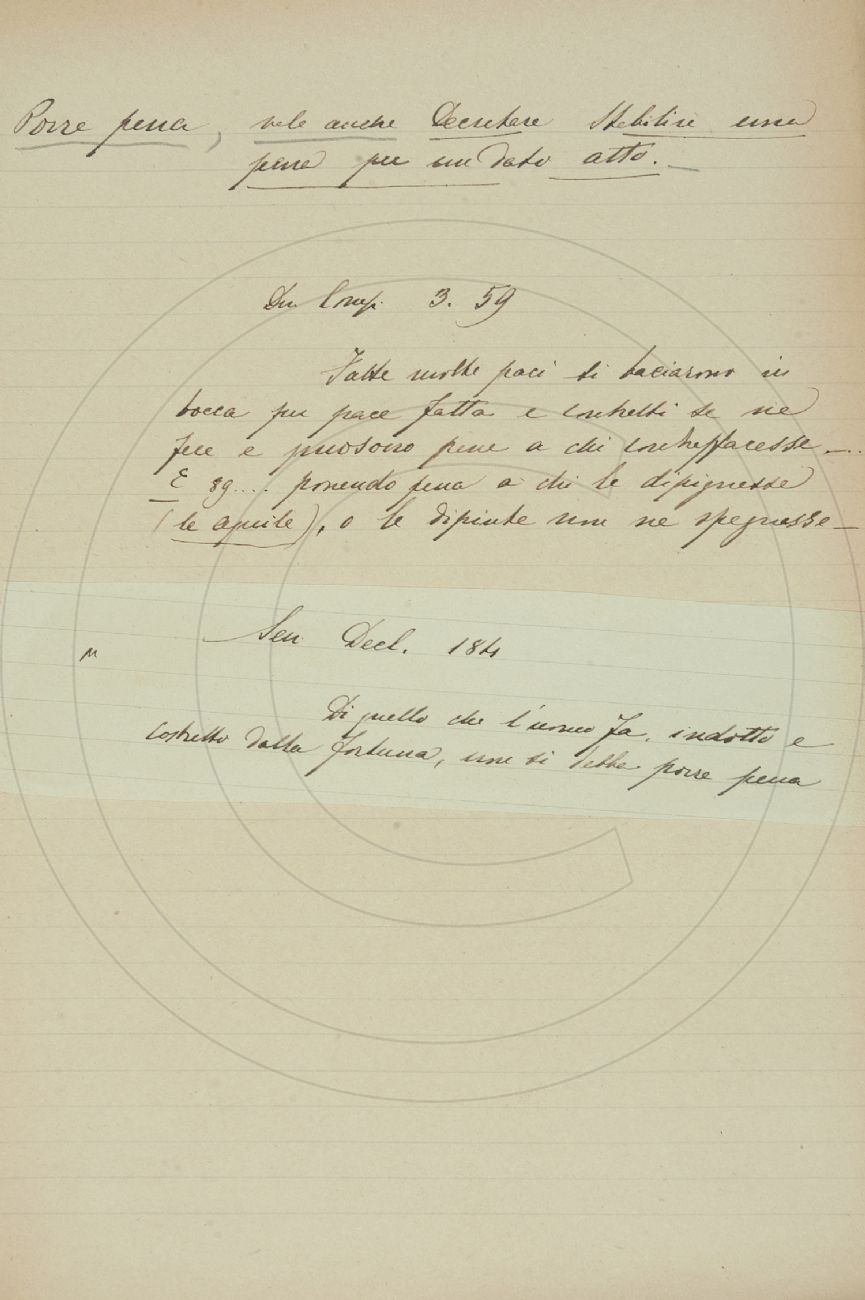 Porre pena, vale anche Decretare Stabilire una
pena per un dato atto. —
Din Comp. 3. 59
Fatte molte paci si baciarono in
bocca per pace fatta e contratti se ne
fece e puosono pene a chi contraffacesse ....
E 89.... ponendo pena a chi le dipignesse
(le aquile), o le dipinte non ne spegnesse —
Sen Decl. 184
Di quello che l'uomo fa, indotto e
costretto dalla fortuna, non si debbe porre pena